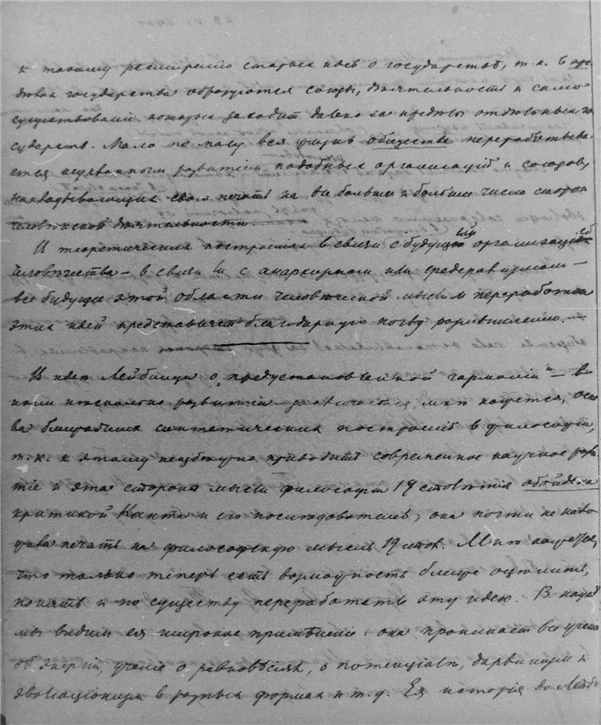 к такому расширению старых идей о государстве, т.к. в пре-
делах государства образуются союзы, деятельность и само-
существование которых заходит далеко за пределы отдельных го-
сударств. Мало по малу вся жизнь общества перерабатыва-
ется неуклонным развитием подобных организаций и союзов,
накладывающих свою печать на все больши и больши число сторон
человеческой деятельности.
И теоретическия построения в связи с будущей организацией
человечества – в связи ли с анархизмом или федерализмом –
все будущее этой области человеческой мысли переработка
этих идей представляет благодарную почву размышлению. –
И идея Лейбница о „предустановленной гармонии" – в
развития – заключается, мне кажется, осно-
ва ближайших синтетических построений в философии,
т.к. к этому неизбежно приводит современное научное разви-
тие и эта сторона мысли философа 19 столетия обойдена
критикой Канта и его последователей; она почти не нало-
жила печать на философскую мысль 19 столет. Мне кажется,
что только теперь есть возможность ближе оценить,
понять и по существу переработать эту идею. В науке
мы видим ея широкое применение: она проникает все учение
об энергии, учение о равновесиях, о потенциале, дарвинизм и
эволюционизм в разных формах и т.д. Ея история до Лейб-